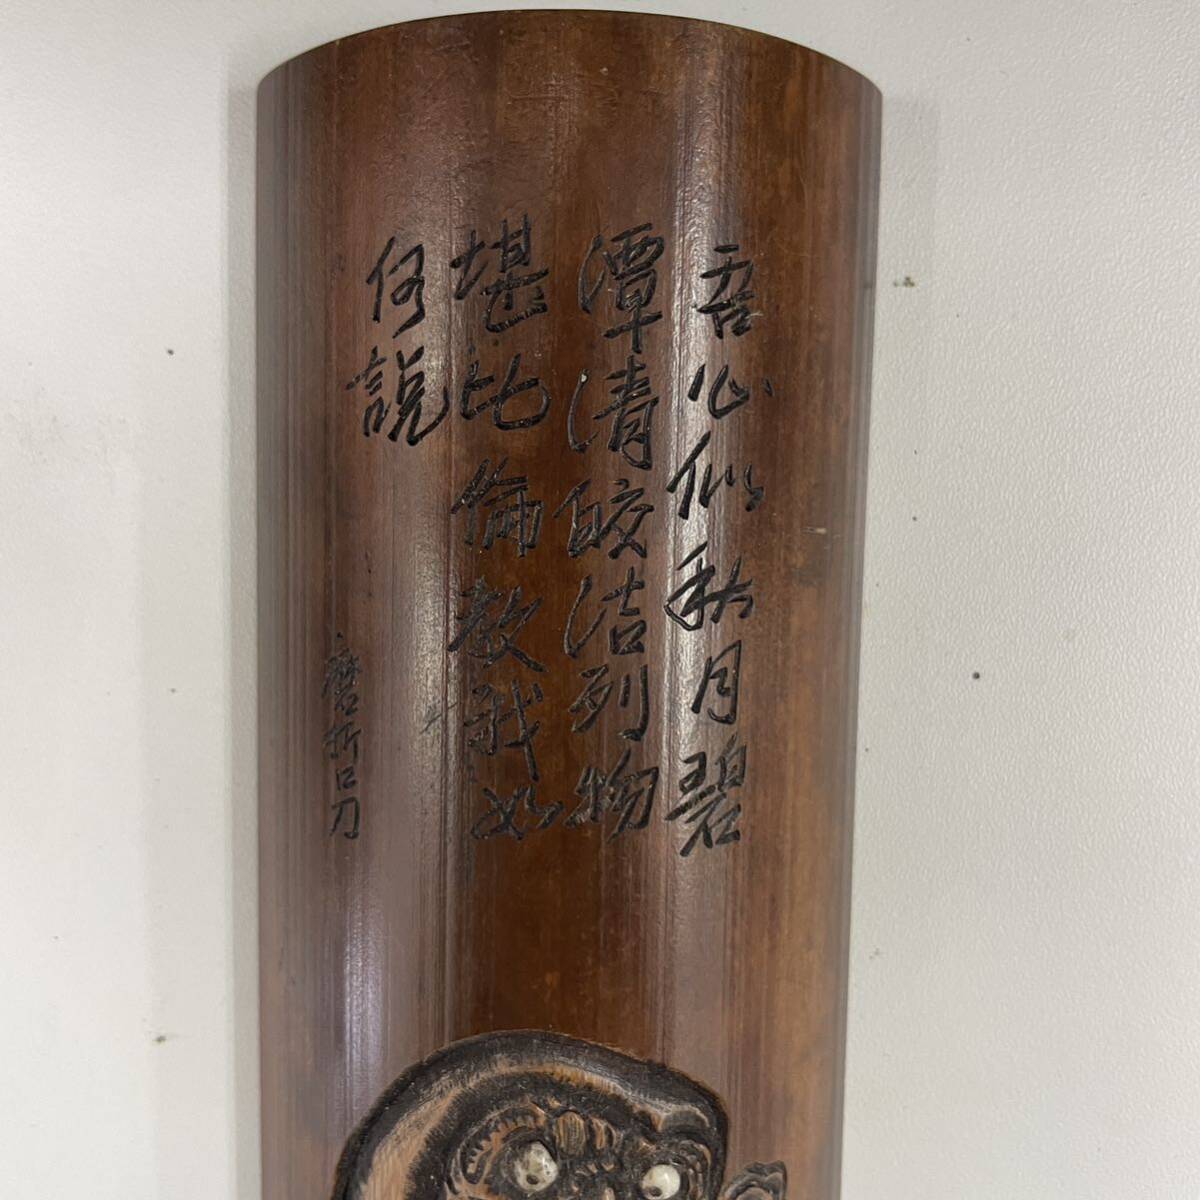 吾心似秋月碧
潭清皎洁列物
堪比倫教我如
何説
磨折口刀